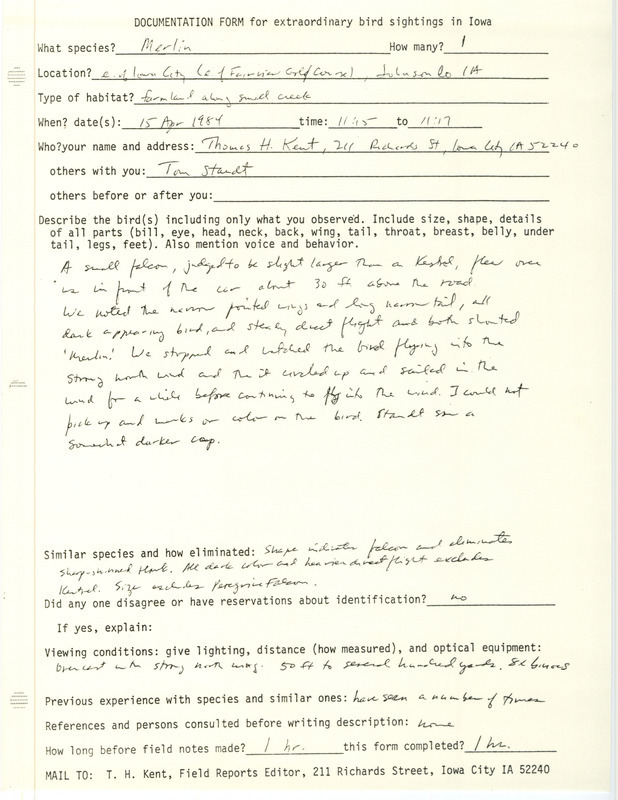 DOCUMENTATION FORM for extraordinary bird sightings in Iowa
What species? Merlin How many? 1
Location? e. of Iowa City (e of Fairview Golf Course), Johnson Co IA
Type of habitat? farmland along small creek
When? date(s): 15 Apr 1984 time: 11:15 to 11:17
Who?your name and address: Thomas H. Kent, 211 Richards St, Iowa City IA 52240
others with you: Tom Staudt
others before or after you:
Describe the bird(s) including only what you observed. Include size, shape, details
of all parts (bill, eye, head, neck, back, wing, tail, throat, breast, belly, under
tail, legs, feet). Also mention voice and behavior.
A small falcon, judged to be slight larger than a Kestrel, flew over
us in front of the car about 30 ft above the road
We noted the narrow pointed wings and long narrow tail, all
dark appearing bird, and steady direct flight and both shouted
'Merlin.' We stopped and watched the bird flying into the
strong north wind and the it circled up and sailed in the
wind for a while before continuing to fly into the wind. I could not
pick up and marks or color on the bird. Staudt saw a
somewhat darker cap.
Similar species and how eliminated: Shape indicates falcon and eliminates
Sharp-shinned Hawk. All dark color and heavier direct flight excludes
Kestrel. Size excludes Peregrine Falcon.
Did any one disagree or have reservations about identification? no
If yes, explain:
Viewing conditions: give lighting, distance (how measured), and optical equipment:
Overcast with strong north wing. 50 ft to several hundred yards. 8x binocs
Previous experience with species and similar ones: have seen a number of times
References and persons consulted before writing description: none
How long before field notes made? 1 hr. this form completed? 1 hr.
MAIL TO: T. H. Kent, Field Reports Editor, 211 Richards Street, Iowa City IA 52240